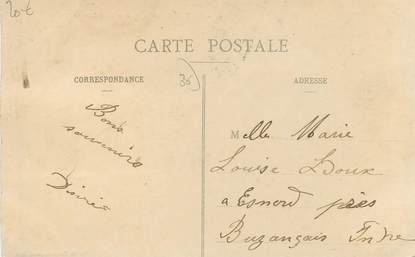 20€
CARTE POSTALE
CORRESPONDANCE
35
ADRESSE
Bons
souvenirs
Désiré
Melle Marie
Louise Doux
a près
Buzançais Indre